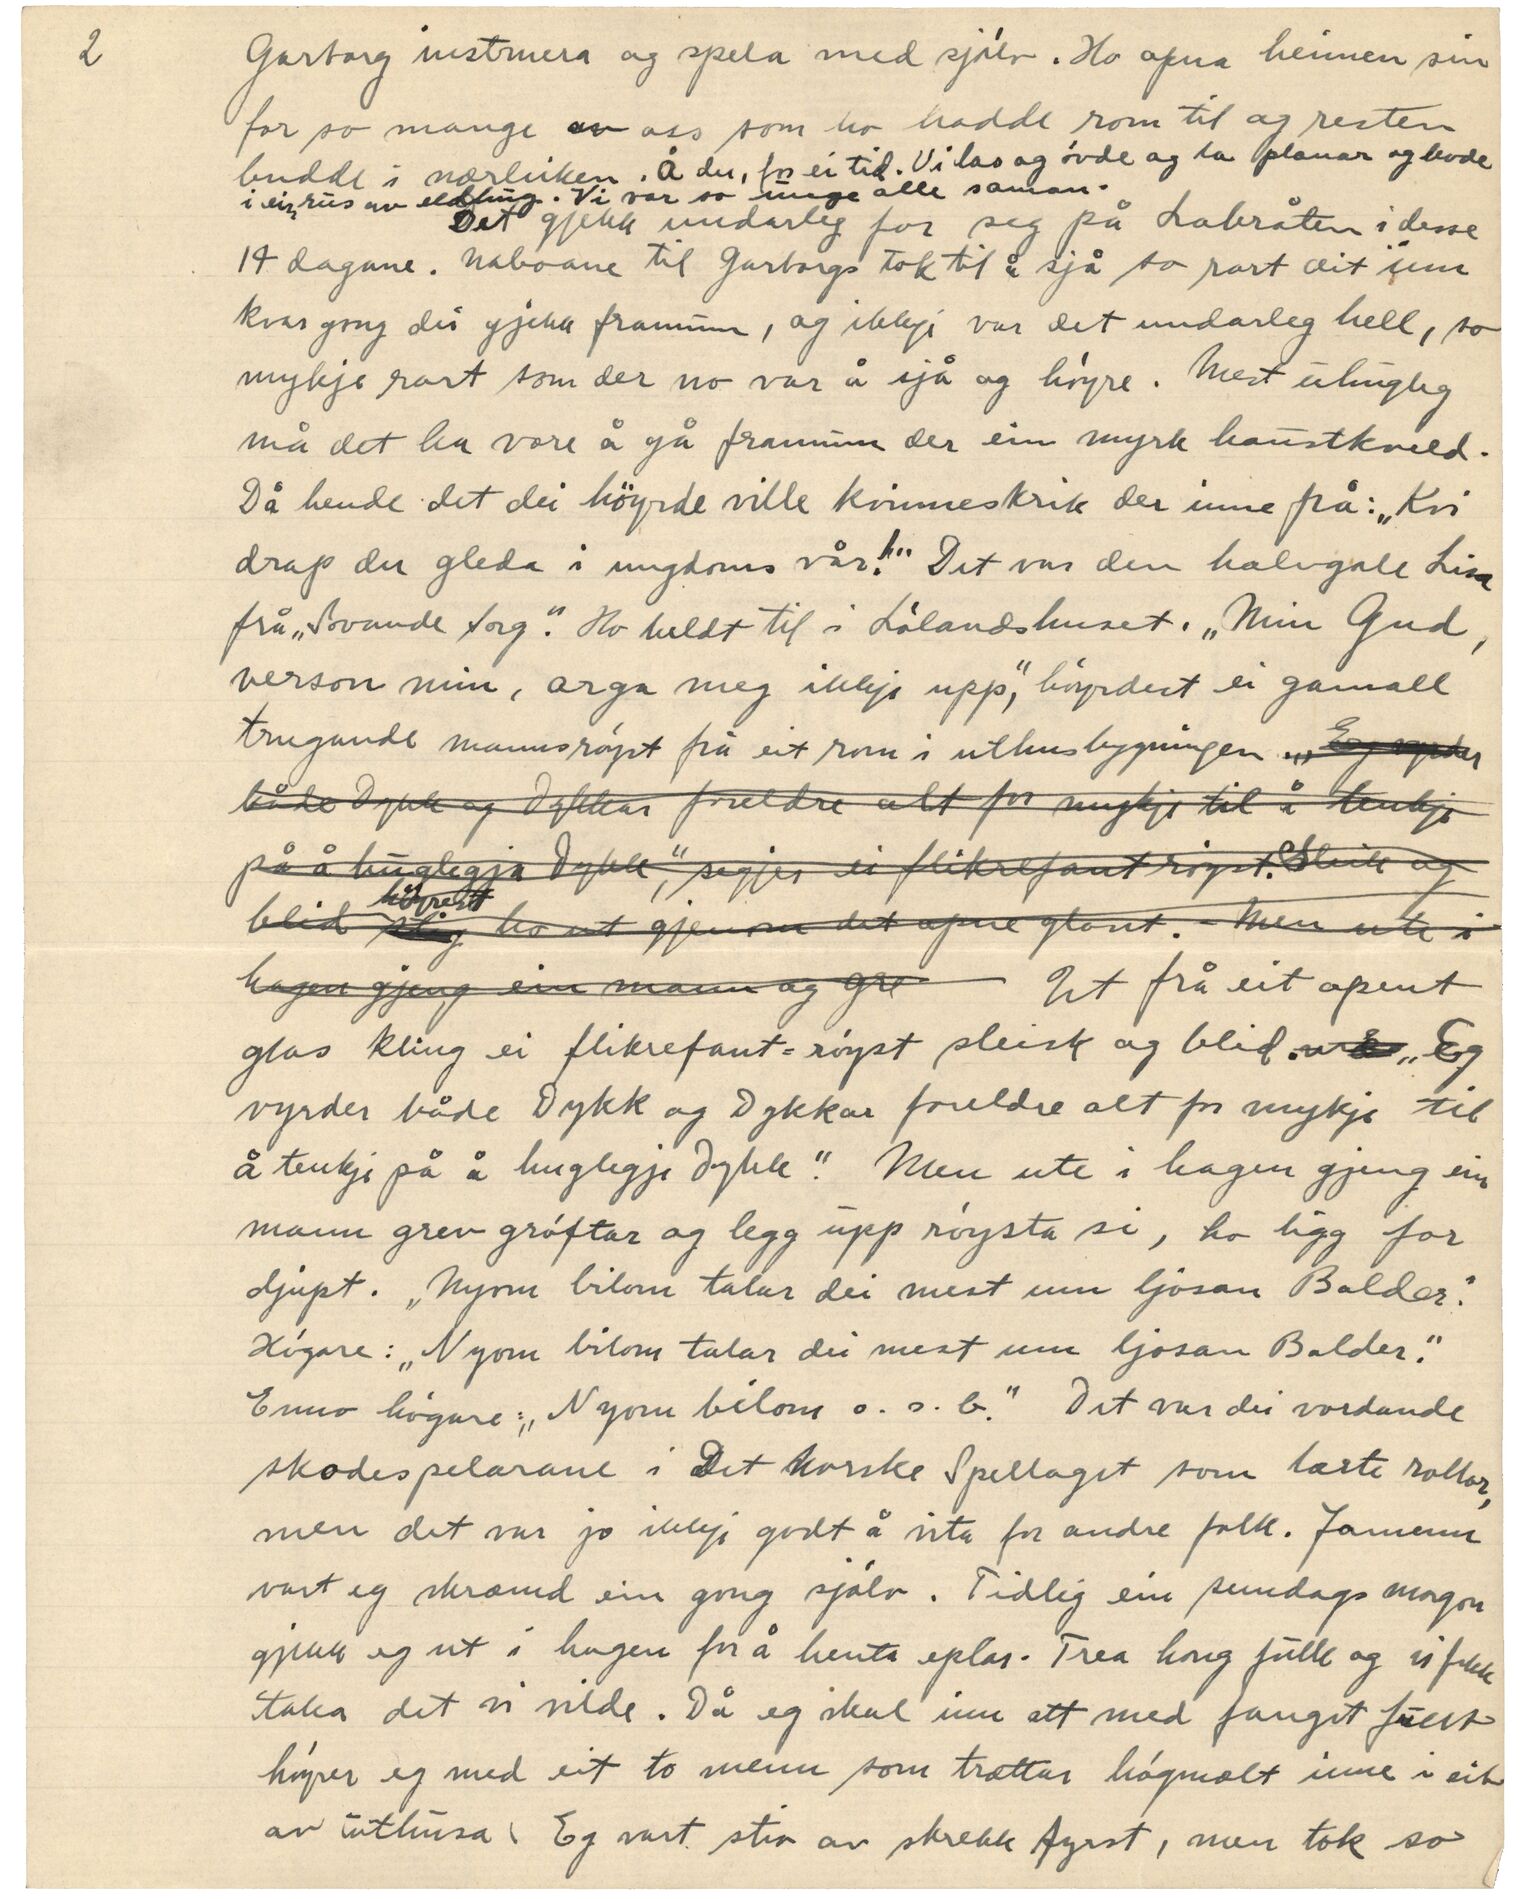 2
Garborg instruera og spela med sjølv. Ho opna heimen sin
for so mange av oss som ho hadde rom til og resten
budde i nærleiken. Å du, for ei tid. Vi las og øvde og la planar og levde
i ein rus av eldhug. Vi var so unge alle saman.
Det gjekk undarleg for seg på Labråten i desse
14 dagane. Naboane til Garborgs tok til å sjå so rart eit um
kvar gong dei gjekk framum, og ikkje var det undarleg hell, so
mykje rart som der no var å sjå og høyre. Mest uhugleg
må det ha vore å gå framum der ein myrk haustkveld.
Då hende det dei høyrde ville kvinneskrik der inne frå: „Kvi
drap du gleda i ungdoms vår!" Det var den halvgale Lisa
frå „Sovande sorg". Ho heldt til i Lølandshuset. „Min Gud,
verson min, arga meg ikkje upp", høyrdest ei gamall
trugande mannsrøyst frå eit rom i uthusbygningen. „Eg vyrder
både Dykk og Dykkar foreldre alt for mykje til å tenkje
på å huglegja Dykk", segjer ei flikrefantrøyst. Sleik og
høyrest
blid slig ho ut gjenom det opne glaset. - Men ute i
hagen gjeng ein mann og gre Ut frå eit opent
glas kling ei flikrefant=røyst sleisk og blid. „Eg
vyrder både Dykk og Dykkar foreldre alt for mykje til
å tenkje på å huglegje Dykk". Men ute i hagen gjeng ein
mann grev grøftar og legg upp røysta si, ho ligg for
djupt. „Nyom bilom talar dei mest um ljosan Balder".
Høgare: „Nyom bilom talar dei mest um ljosan Balder".
Enno høgare: „Nyom bilom o. s. b." Det var dei vordande
skodespelarane i Det Norske Spellaget som lærte rollor,
men det var jo ikkje godt å vita for andre folk. Jamenn
vart eg skræmd ein gong sjølv. Tidleg ein sundags morgon
gjekk eg ut i hagen for å henta eplar. Trea hong fulle og vi fekk
taka det vi vilde. Då eg skal inn att med fanget fullt
høyrer eg med eit to menn som trættar høgmælt inne i eit
av uthusa. Eg vart stiv av skrekk fyrst, men tok so